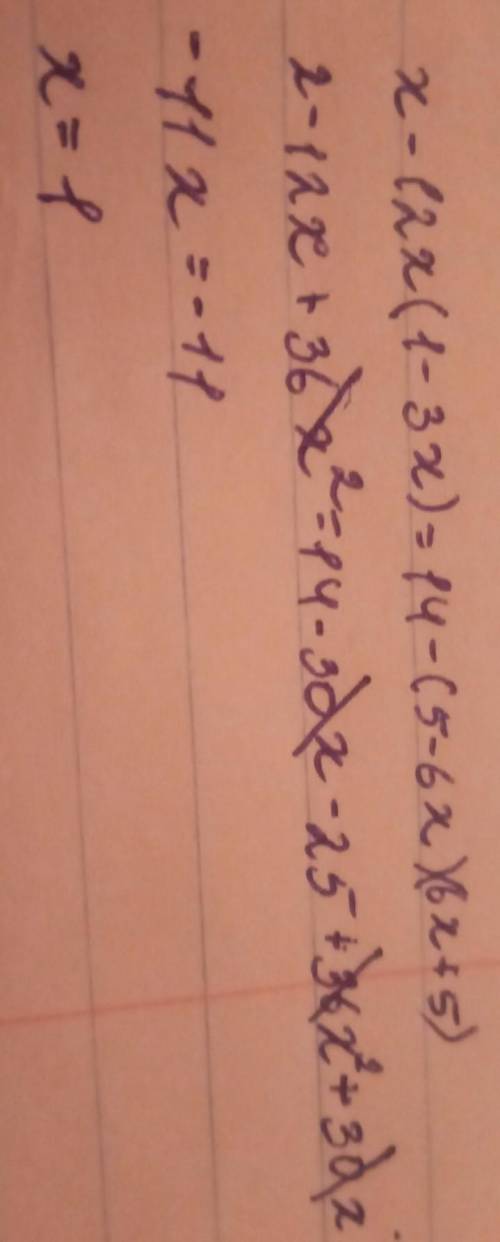 x - 12x(1 - 3x) = 14 - (5 - 6x)(6x + 5)
x - 12x + 36x² = 14 - 30x - 25 + 36x² + 30x
-11x = -11
x = 1